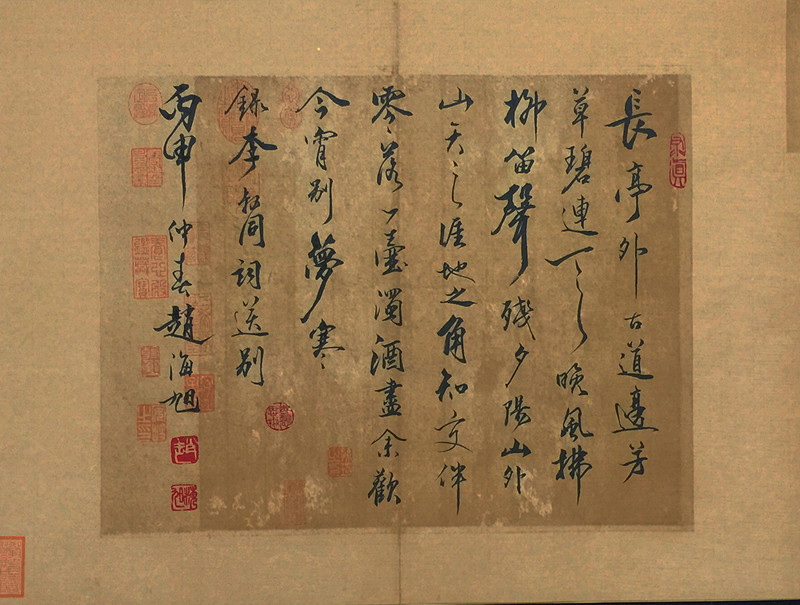 長亭外古道邊芳
草碧連天晚風拂
柳笛聲殘夕陽山外
山天之涯地之角知交伴
零落一壺濁酒盡余歡
今宵別夢寒
錄李叔同詞送別
丙申仲春趙海旭